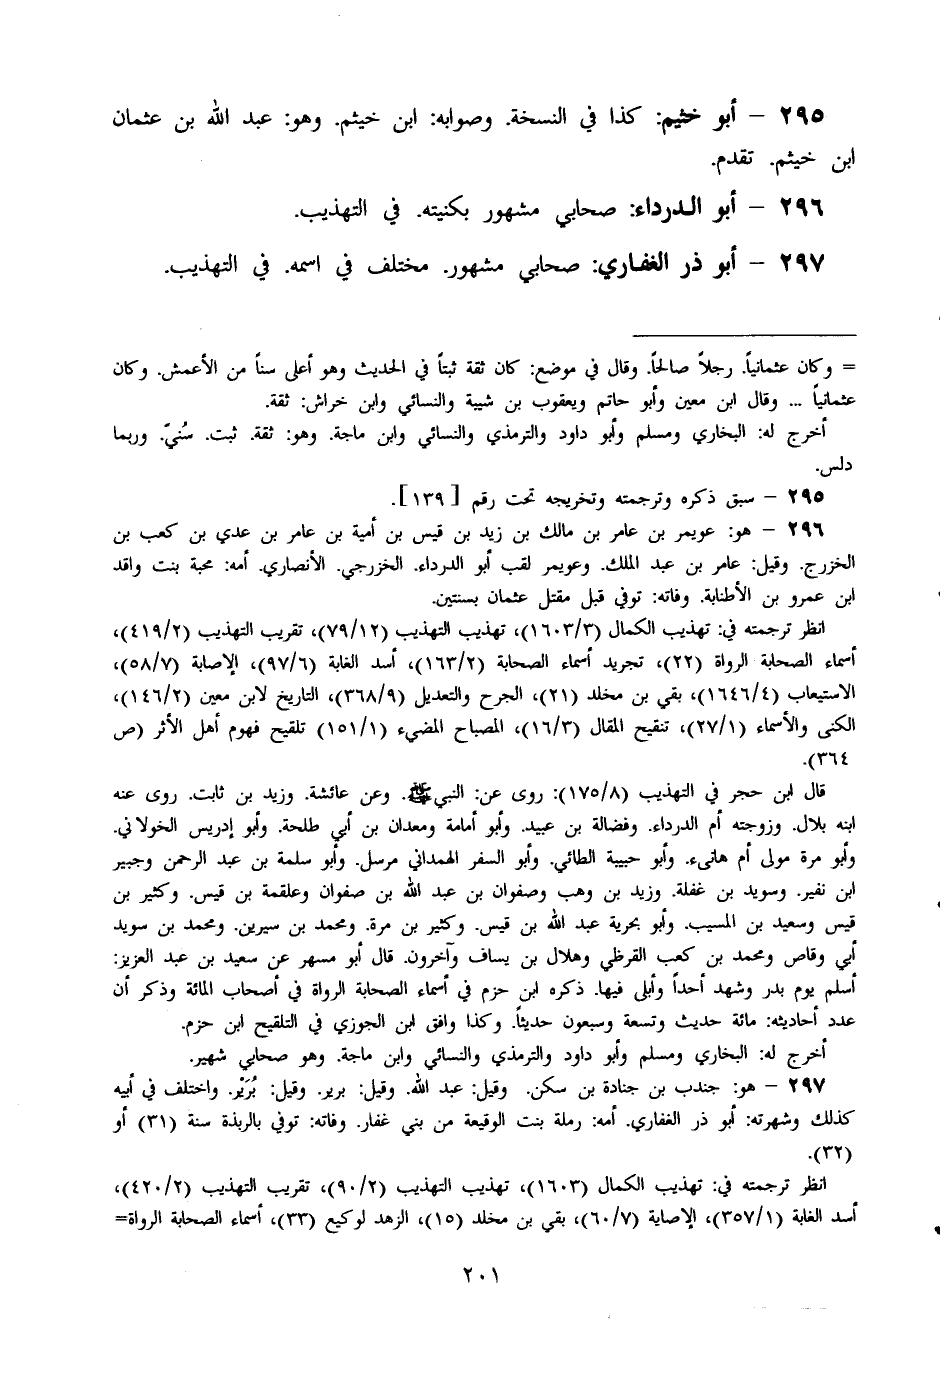 ٢٩٥ – أبو خثيم: كذا في النسخة. وصوابه: ابن خيثم. وهو: عبد الله بن عثمان
ابن خيثم. تقدم.
٢٩٦ – أبو الدرداء: صحابي مشهور بكنيته. في التهذيب.
٢٩٧ – أبو ذر الغفاري: صحابي مشهور. مختلف في اسمه. في التهذيب.
= وكان عثمانياً. رجلاً صالحاً. وقال في موضع: كان ثقة ثبتاً في الحديث وهو أعلى سناً من الأعمش. وكان
عثمانياً ... وقال ابن معين وأبو حاتم ويعقوب بن شيبة والنسائي وابن خراش: ثقة.
أخرج له: البخاري ومسلم وأبو داود والترمذي والنسائي وابن ماجة. وهو: ثقة. ثبت. سُنيّ. وربما
دلس.
٢٩٥ – سبق ذكره وترجمته وتخريجه تحت رقم [١٣٩].
٢٩٦ – هو: عويمر بن عامر بن مالك بن زيد بن قيس بن أمية بن عامر بن عدي بن كعب بن
الخزرج. وقيل: عامر بن عبد الملك. وعويمر لقب أبو الدرداء. الخزرجي. الأنصاري. أمه: محبة بنت واقد
ابن عمرو بن الأطنابة. وفاته: توفي قبل مقتل عثمان بسنتين.
انظر ترجمته في: تهذيب الكمال (١٦٠٣/٣)، تهذيب التهذيب (٧٩/١٢)، تقريب التهذيب (٤١٩/٢)،
أسماء الصحابة الرواة (٢٢)، تجريد أسماء الصحابة (١٦٣/٢)، أسد الغابة (٩٧/٦)، الإصابة (٥٨/٧)،
الاستيعاب (١٦٤٦/٤)، بقي بن مخلد (٢١)، الجرح والتعديل (٣٦٨/٩)، التاريخ لابن معين (١٤٦/٢)،
الكنى والأسماء (٢٧/١)، تنقيح المقال (١٦/٣)، المصباح المضيء (١٥١/١) تلقيح فهوم أهل الأثر (ص
٣٦٤).
قال ابن حجر في التهذيب (١٧٥/٨): روى عن: النبي ﷺ. وعن عائشة. وزيد بن ثابت. روى عنه
ابنه بلال. وزوجته أم الدرداء. وفضالة بن عبيد. وأبو أمامة ومعدان بن أبي طلحة. وأبو إدريس الخولاني.
وأبو مرة مولى أم هانىء. وأبو حبيبة الطائي. وأبو السفر الهمداني مرسل. وأبو سلمة بن عبد الرحمن وجبير
ابن نفير. وسويد بن غفلة. وزيد بن وهب وصفوان بن عبد الله بن صفوان وعلقمة بن قيس. وكثير بن
قيس وسعيد بن المسيب. وأبو بحرية عبد الله بن قيس. وكثير بن مرة. ومحمد بن سيرين. ومحمد بن سويد
أبي وقاص ومحمد بن كعب القرظي وهلال بن يساف وآخرون. قال أبو مسهر عن سعيد بن عبد العزيز:
أسلم يوم بدر وشهد أحداً وأبلى فيها. ذكره ابن حزم في أسماء الصحابة الرواة في أصحاب المائة وذكر أن
عدد أحاديثه: مائة حديث وتسعة وسبعون حديثاً. وكذا وافق ابن الجوزي في التلقيح ابن حزم.
أخرج له: البخاري ومسلم وأبو داود والترمذي والنسائي وابن ماجة. وهو صحابي شهير.
٢٩٧ – هو: جندب بن جنادة بن سكن. وقيل: عبد الله. وقيل: برير. وقيل: بُرَيْر. واختلف في أبيه
كذلك وشهرته: أبو ذر الغفاري. أمه: رملة بنت الوقيعة من بني غفار. وفاته: توفي بالربذة سنة (٣١) أو
(٣٢).
انظر ترجمته في: تهذيب الكمال (١٦٠٣)، تهذيب التهذيب (٩٠/٢)، تقريب التهذيب (٤٢٠/٢)،
أسد الغابة (٣٥٧/١)، الإصابة (٦٠/٧)، بقي بن مخلد (١٥)، الزهد لوكيع (٣٣)، أسماء الصحابة الرواة=
٢٠١